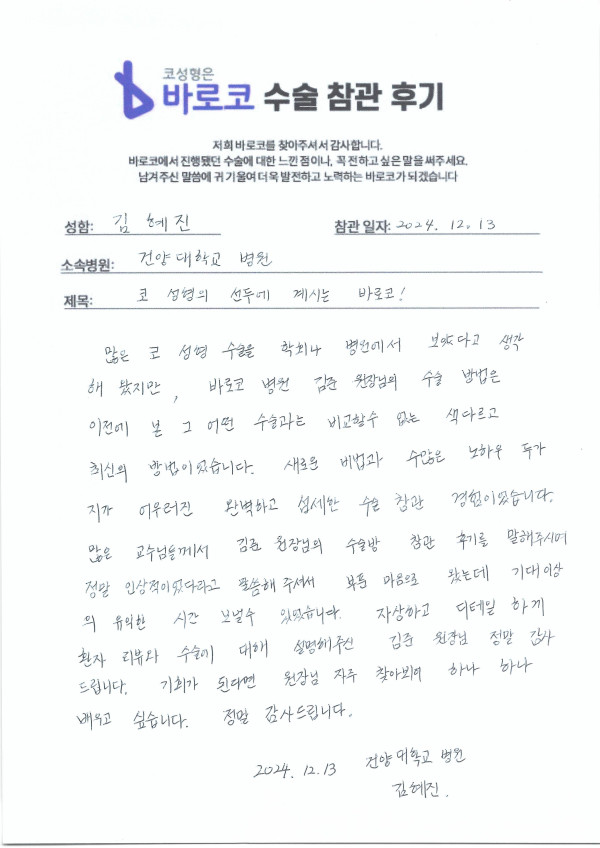 코성형은
바로코 수술 참관 후기
저희 바로코를 찾아주셔서 감사합니다.
바로코에서 진행됐던 수술에 대한 느낀 점이나, 꼭 전하고 싶은 말을 써주세요.
남겨주신 말씀에 귀 기울여 더욱 발전하고 노력하는 바로코가 되겠습니다
성함: 김 혜진 참관 일자: 2024. 12. 13
소속병원: 건양대학교 병원
제목: 코 성형의 선두에 계시는 바로코!
많은 코 성형 수술을 학회나 병원에서 보았다고 생각
해 봤지만, 바로코 병원 김준 원장님의 수술 방법은
이전에 본 그 어떤 수술과는 비교할수 없는 색다르고
최신의 방법이었습니다. 새로운 비법과 수많은 노하우 두가
지가 어우러진 완벽하고 섬세한 수술 참관 경험이었습니다.
많은 교수님들께서 김준 원장님의 수술방 참관 후기를 말해주시며
정말 인상적이었다라고 말씀해 주셔서 부푼 마음으로 왔는데 기대이상
의 유익한 시간 보낼수 있었습니다. 자상하고 디테일 하게
환자 리뷰와 수술에 대해 설명해주신 김준 원장님 정말 감사
드립니다. 기회가 된다면 원장님 자주 찾아뵈며 하나 하나
배우고 싶습니다. 정말 감사드립니다.
2024. 12. 13 건양대학교 병원
김혜진.